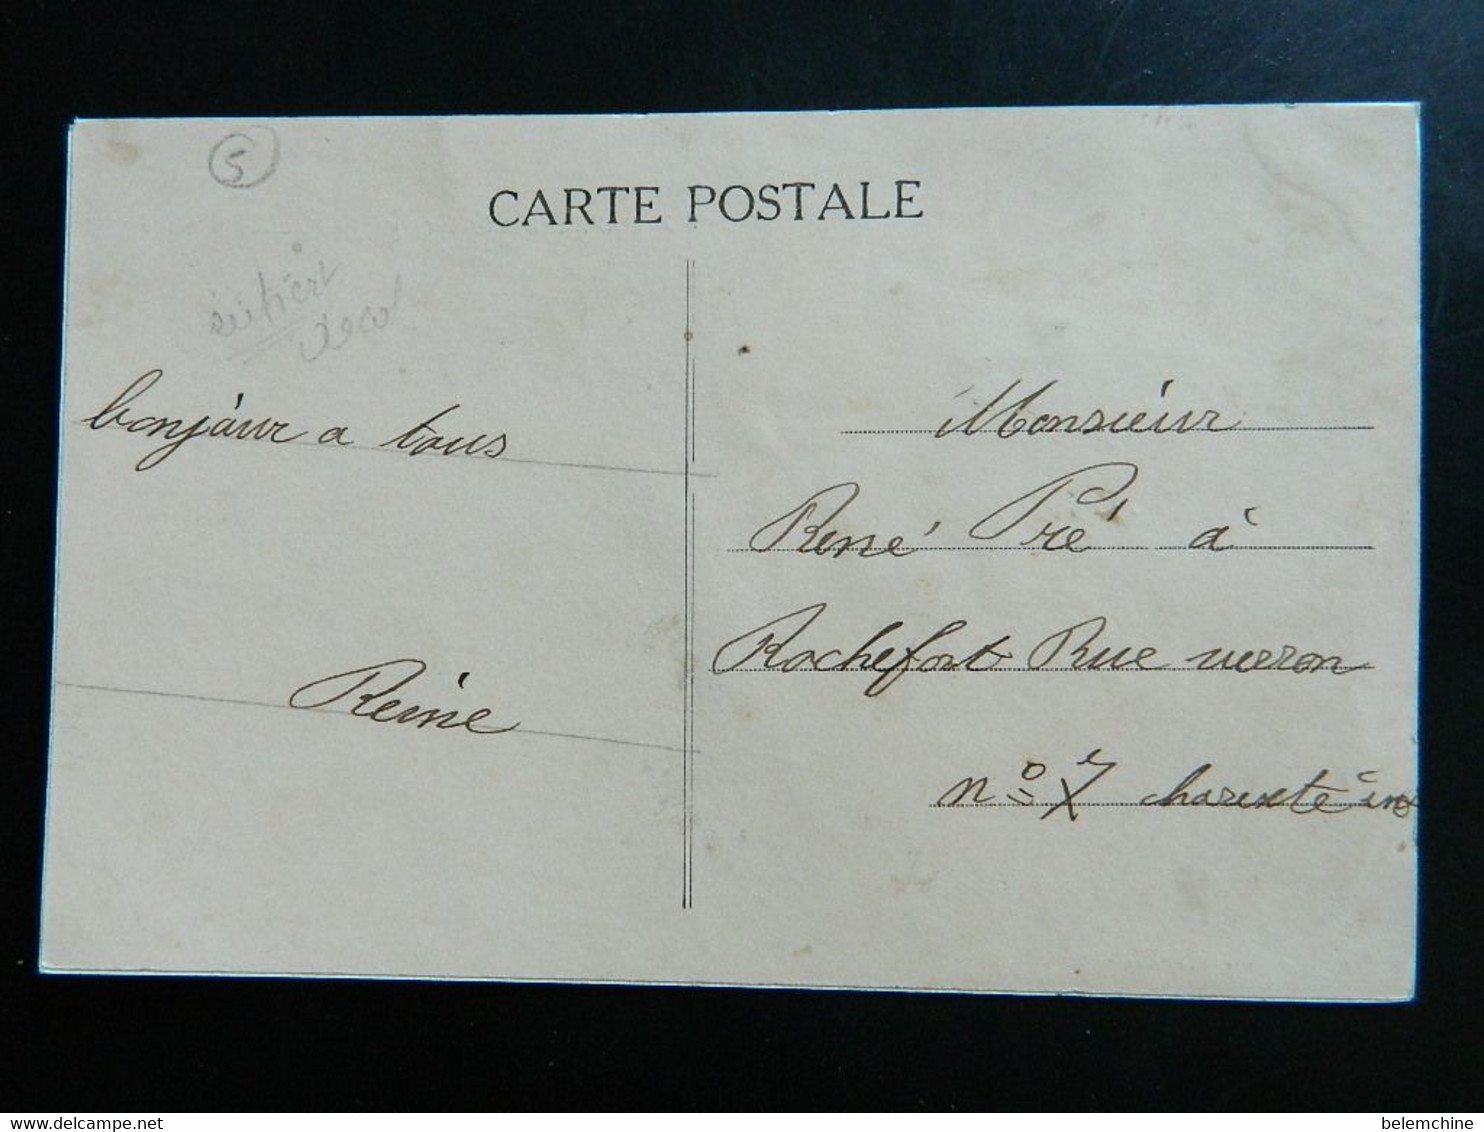 5
CARTE POSTALE
bonjour a tous
Reine
Monsieur
René Pré à
Rochefort Rue verron
nº 7 charente inf
delcampe.net
belemchine